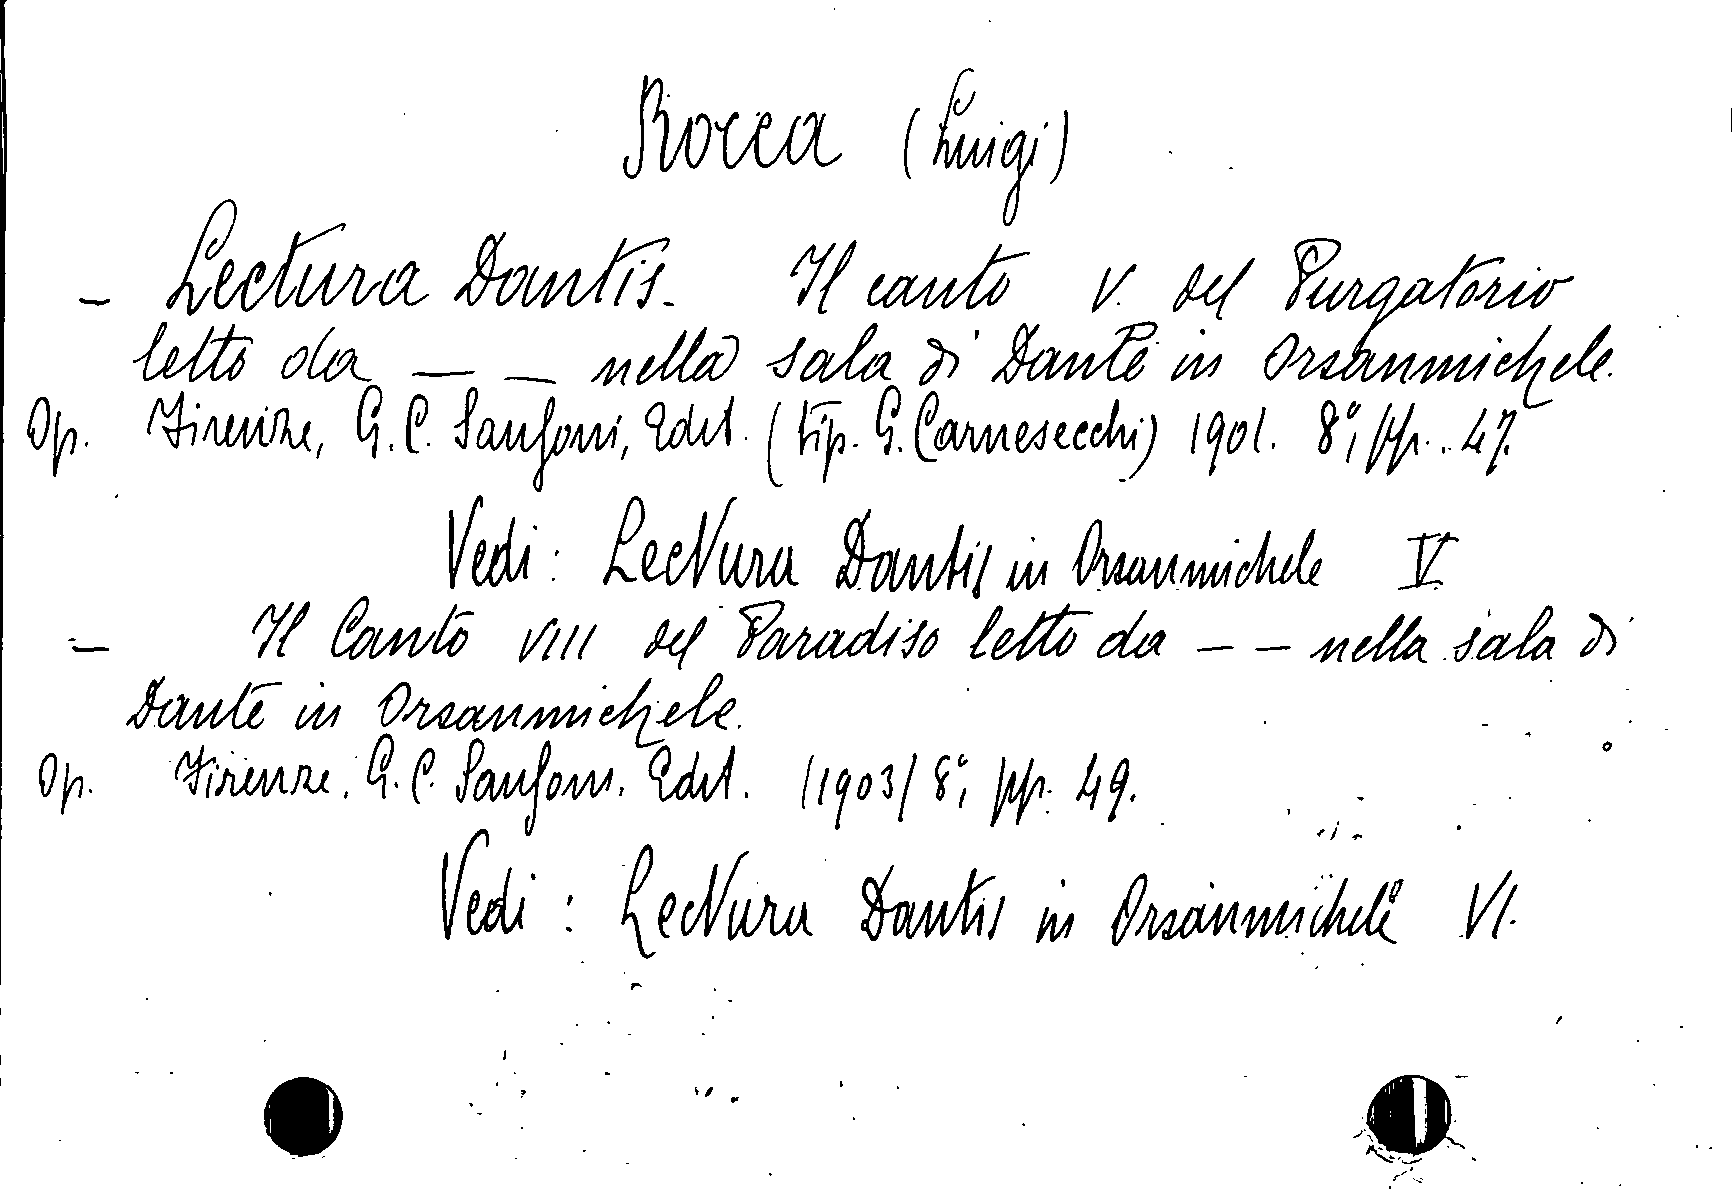 Rocca (Luigi)
- Lectura Dantis. Il canto V. del Purgatorio
letto da — — nella sala di Dante in Orsanmichele.
Op. Firenze, G. C. Sansoni, Edit. (tip. G. Carnesecchi) 1901. 8°, pp. 47.
Vedi: Lectura Dantis in Orsanmichele V
- Il Canto VIII del Paradiso letto da — — nella sala di
Dante in Orsanmichele.
Op. Firenze, G. C. Sansoni, Edit. (1903) 8°, pp. 49.
Vedi: Lectura Dantis in Orsanmichele VI.